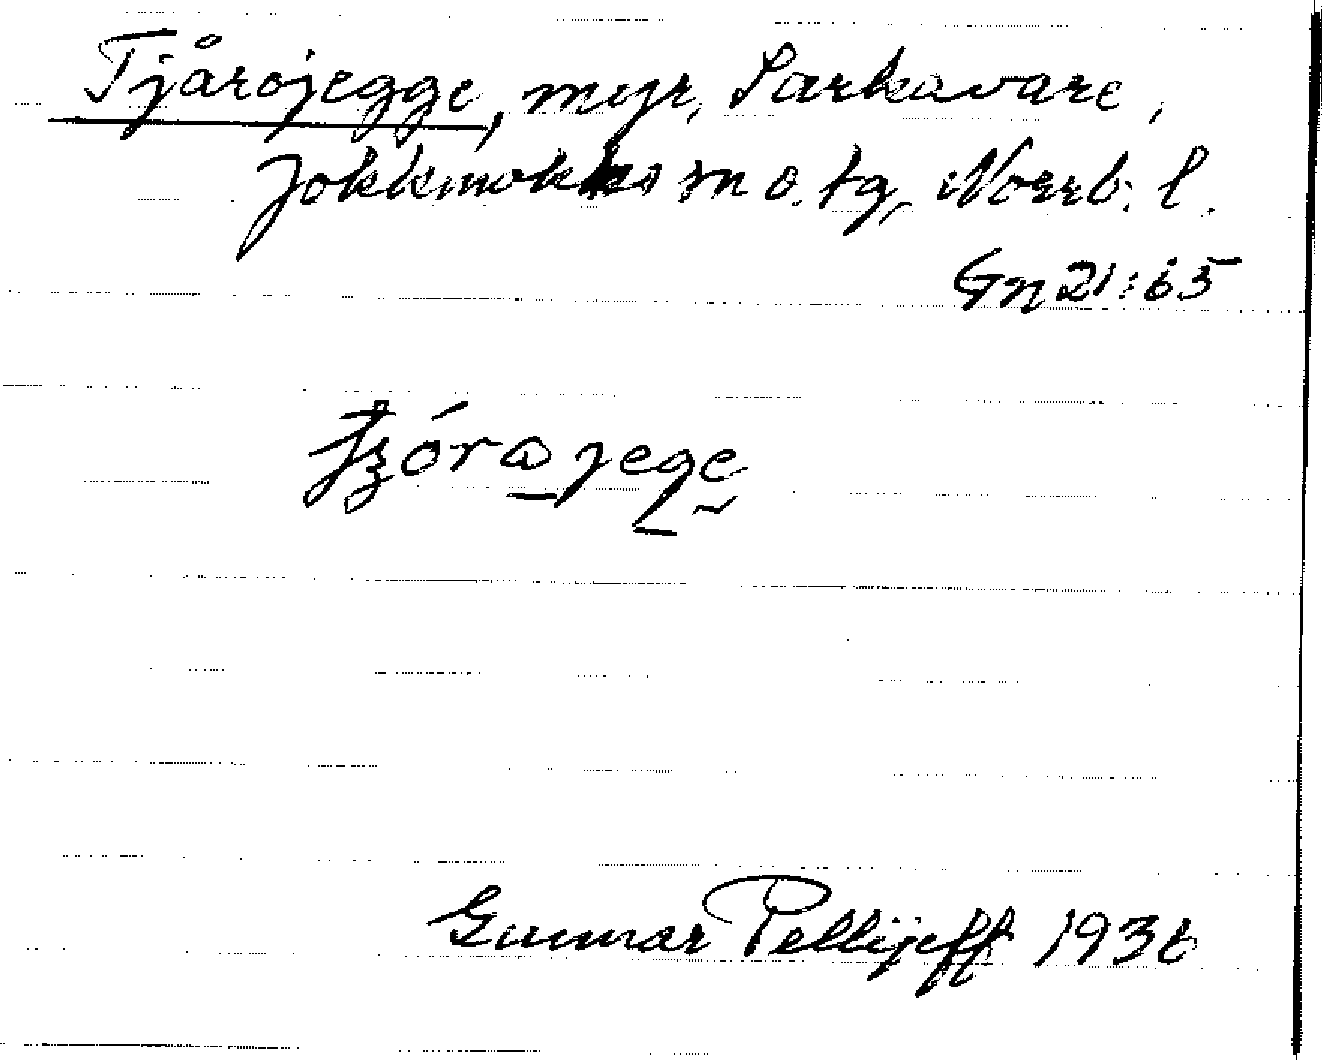 Tjårojegge, myr, Parkavare,
Jokkmokks sn o. tg, Norrb. l.
Gn 21:65
Gunnar Pellijeff 1936